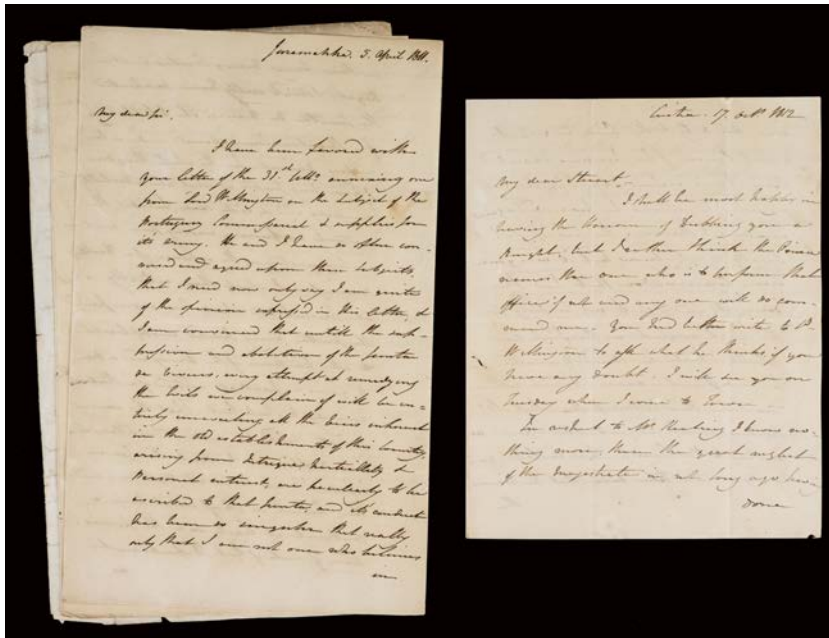 3. April 1811.
My dear Sir,
I have been favored with
your letter of the 31.st Ulto. enclosing one
from Lord Wellington on the subject of the
Portuguese Commissariat & supplies for
its army. He and I have so often con-
versed and agreed upon these subjects,
that I need now only say I am quite
of the opinion expressed in this letter, &
I am convinced that untill the sup-
pression and abolition of the Junta
de Viveres, every attempt at remedying
the evils we complain of will be en-
tirely unavailing all the vices inherent
in the old establishments of this Country,
arising from intrigue partiality &
personal interest, are peculiarly to be
ascribed to that Junta, and its conduct
has been so singular that really
only that I am not one who believes
in
17. Octr. 1812
My dear Stuart,
I shall be most happy in
having the honour of dubbing you a
Knight, but I rather think the Prince
names the one who is to perform that
office, if at
and any one will do com-
mand me. You had better write to Ld.
Wellington to ask what he thinks if you
have any doubt. I will see you on
Tuesday when I come to Town
In
to Mr. Keating I know no-
thing more, than the great neglect
of the Magistrate in not long ago having
done